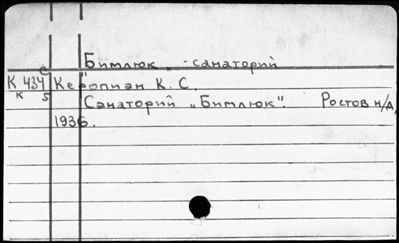 Битлюк „ - санаторий
с
К 434 Керопиан К. С.
к 5 Санаторий „Битлюк". Ростов н/Д,
1936.